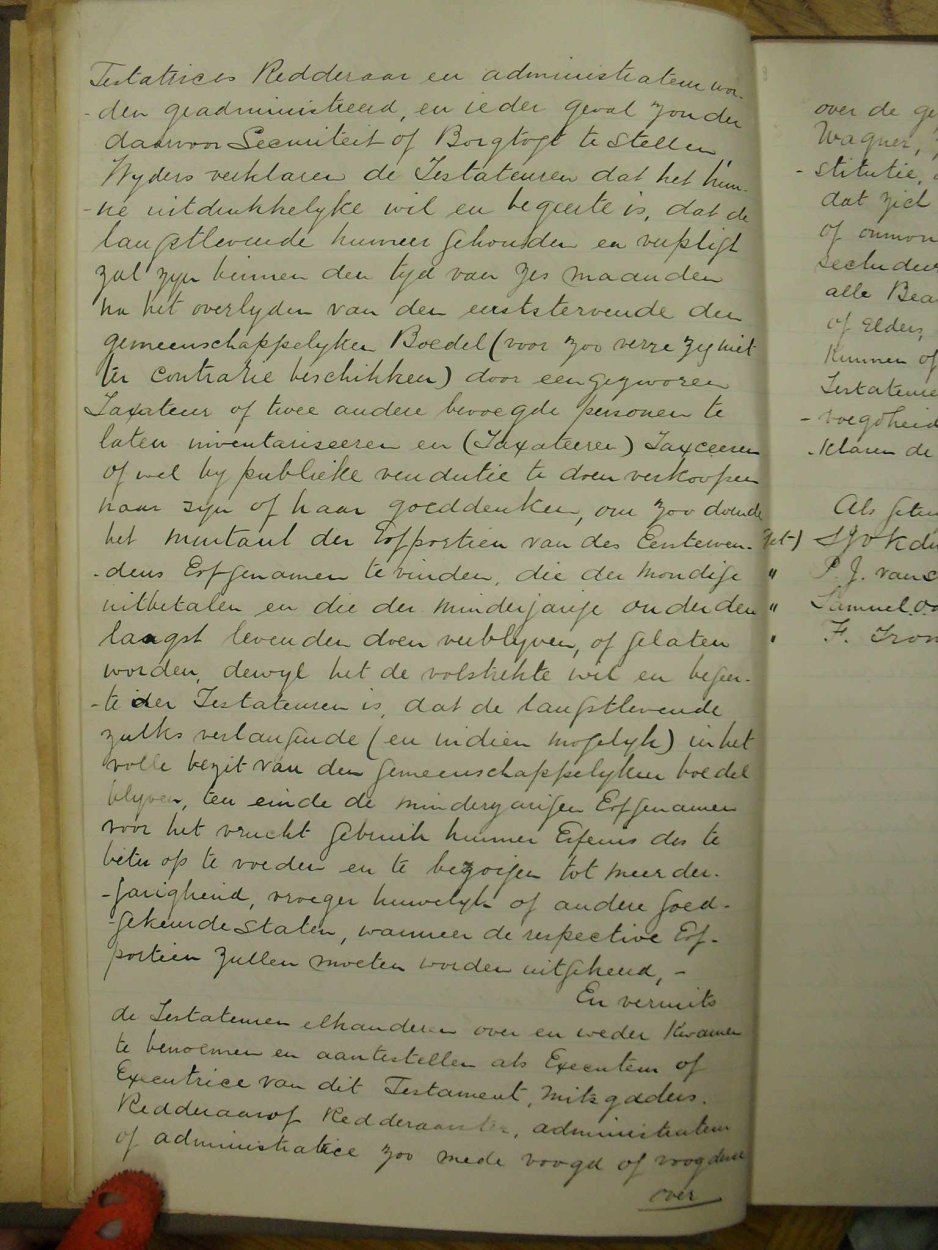 Testatrices Redderaar en administrateur wor-
-den geadministreerd, en ieder geval zonder
daarvoor Securiteit of Borgtogt te stellen,
Wyders verklaren de Testateuren dat het hun-
-ne uitdrukkelyke wil en begeerte is, dat de
langstlevende hunner gehouden en verpligt
zal zyn binnen den tyd van zes maanden
na het overlyden van den eerststervende den
gemeenschappelyken Boedel (voor zoo verre zy niet
ter contrarie beschikken) door een gezworen
Taxateur of twee andere bevoegde personen te
laten inventariseeren en (Taxateeren) Taxeeren
of wel by publieke vendutie te doen verkoopen
naar zyn of haar goeddenken, om zoo doende
het montant der Erfportien van des Eerststerven-
-dens Erfgenamen te vinden, die der mondige
uitbetalen en die der minderjarige onder den
laagst levenden doen verblyven, of gelaten
worden, dewyl het de volstrekte wil en begeer-
-te der Testateuren is, dat de langstlevende
zulks verlangende (en indien mogelyk) in het
volle bezit van den gemeenschappelyken boedel
blyven, ten einde de minderyarigen Erfgenamen
voor het vrucht gebruik hunner Erfenis des te
beter op te voeden en te bezorgen tot meerder-
-jarigheid, vroeger huwelyk of andere goed-
-gekeurde staten, wanneer de respective Erf-
portien zullen moeten worden uitgekeerd, -
En vermits
de Testateuren elkanderen over en weder Kwamen
te benoemen en aantestellen als Executeur of
Executrice van dit Testament, mitsgaders
Redderaar of Redderaarster, administrateur
of administratice zoo mede voogd of voogdesse
over
over de
Wagner,
- stitutie,
dat zich
of
alle
of Elders,
Kunnen of
-voegdheid
-klaren de
Als
get-)
" P. J. van
" Samuel
" F.